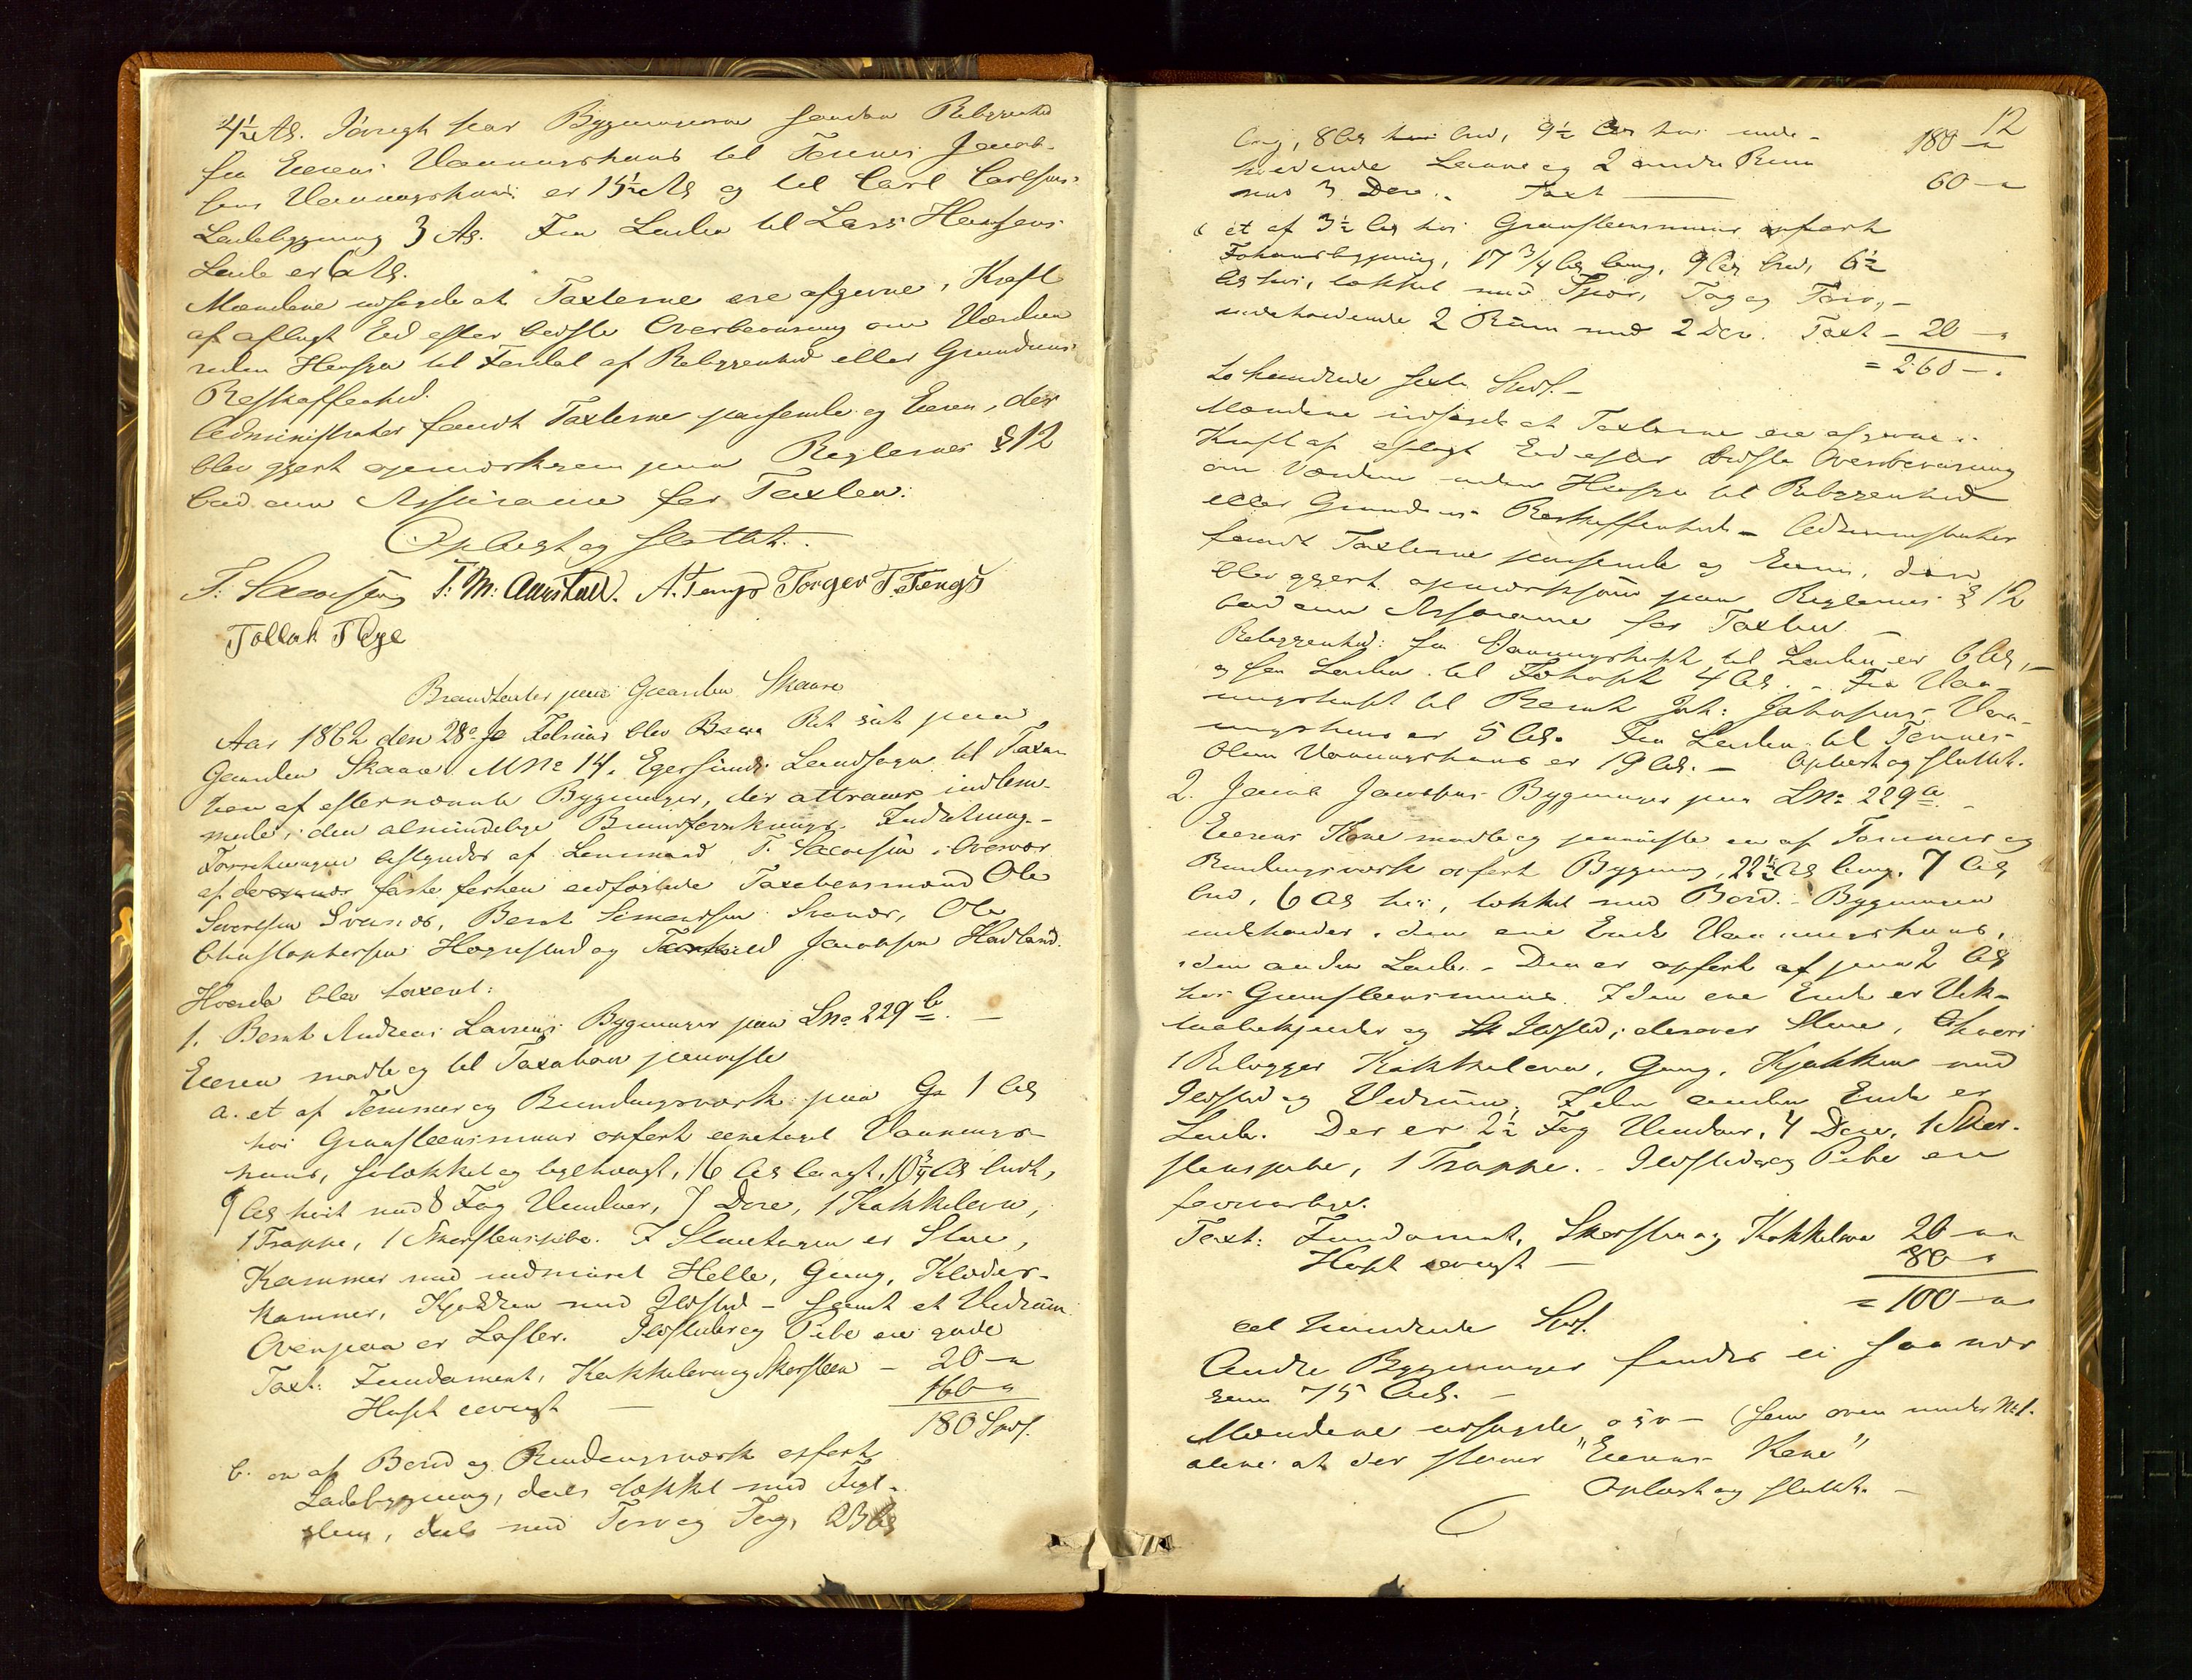 4½ Al. Iøvrigt har Bygningerne saadan Beliggenhed
fra Eierens Vaaningshuus til Tønnes Jacob-
sens Vaaningshuus er 15½ Al og til Carl Carlsens
Ladebygning 3 Al. Fra Laden til Lars Hansens
Lade er 6 Al.
Mændene udsagde at Taxterne ere afgivne i Kraft
af aflagt Eed efter bedste Overbeviisning om Værdien
uden Hensyn til Fordel af Beliggenhed eller Grundens
Beskaffenhed.
Administrator fandt Taxterne passende og Eieren, der
blev gjort opmærksom paa Reglernes § 12
bad om Assurance for Taxten.
Oplæst og sluttet.
T. M. Aarstad. A. Tengs Torger T. Tengs
Tollak T Eye
Brandtaxter paa Gaarden Skaare
Aar 1862 den 28de Februar blev Ret sat paa
Gaarden Skaare MNo 14. Egersunds Landsogn til Taxa-
tion af efternævnte Bygninger, der attraaes indlem-
mede i den almindelige Brandforsikrings Indretning.-
Forretningen bestyredes af Lensmand i Overvær
af de faste forhen edfæstede Taxationsmænd Ole
Sivertsen Svanæs, Bernt Simonsen Svanæs, Ole
Christophersen Hognestad og Jacobsen Hadland.
Hvorda blev taxeret:
1. Bernt Andreas Larsens Bygninger paa LNo 229 b. -
Eieren mødte og til Taxation paaviste
a. et af Tømmer og Bindingsværk paa 1 Al
høi Graasteensmuur opført eenetages Vaanings-
huus, og teglhængt, 16 Al langt, 10¾ Al bredt,
9 Al høit med 8 Fag Vinduer, 7 Døre, 1 Kakkelovn,
1 Trappe, 1 Skorsteenspibe. I Stueetagen er Stue,
Kammer med indmuret Helle, Gang, Klæder-
kammer, Kjøkken med Ildsted - samt et Vedrum
Ovenpaa er Lofter. Ildsteder og Pibe ere gode
Taxt: Fundament, Kakkelovn og Skorsteen - 20 - "
Huset øvrigt - 160 "
180 Spd.
b. en af Bord og Bindingsværk opført
Ladebygning, deels tækket med Tegl-
steen, deels med Torv og Tag, 23 Al
12
lang, 8 Al bred, 9½ Al høi inde- 180 - "
holdende Laave og 2 andre Rum
med 3 Døre. Taxt 60 - "
c et af 3½ Al høi Graasteensmuur opført
Fæhuusbygning, 17 3/4 Al lang, 9 Al bred, 6½
Al høi, tækket med Spær, Tag og Torv, -
indeholdende 2 Rum med 2 Døre. Taxt - 20 - "
= 260 - "
to hundrede sexti Spd. -
Mændene udsagde at Taxterne ere afgivne i
Kraft af aflagt Eed efter bedste Overbeviisning
om Værdien uden Hensyn til Beliggenhed
eller Grundens Beskaffenhed - Administrator
fandt Taxterne passende og Eieren, der
blev gjort opmærksom paa Reglernes § 12
bad om Assurance for Taxten -
Beliggenhed: fra Vaaningshuset til Laden er 6 Al, -
og fra Laden til Fæhuset 4 Al. - Fra Vaa-
ningshuset til Bernt Joh: Jakobsens Vaa-
ningshuus er 5 Al. Fra Laden til Tønnes
Olsens Vaaningshuus er 19 Al. - Oplæst og sluttet.
2. Jacob Jacobsens Bygninger paa LNo 229 a. -
Eierens Kone mødte og paaviste en af Tømmer og
Bindingsværk opført Bygning, 22½ Al lang, 7 Al
bred, 6 Al høi, tækket med Bord. - Bygningen
indeholder i den ene Ende Vaaningshuus,
i den anden Lade. - Den er opført af paa 2 Al
høi Graasteensmuur. I den ene Ende er
og Ildsted, derover Stue, hvori
1 Kakkelovn, Gang, Kjøkken med
Ildsted og Vedrum. I den anden Ende er
Lade. Der er 2½ Fag Vinduer, 4 Døre, 1 Skor-
steenspibe, 1 Trappe. - Ildsteder og Pibe ere
forsvarlige.
Taxt: Fundament, Skorsteen og Kakkelovn 20 - "
Huset øvrigt - 80 "
= 100 - "
eet hundrede Spd.
Andre Bygninger findes ei saa nær
som 75 Al. -
Mændene udsagde osv - (som oven under No 1.
alene at der staaer "Eierens Kone"
Oplæst og sluttet. -